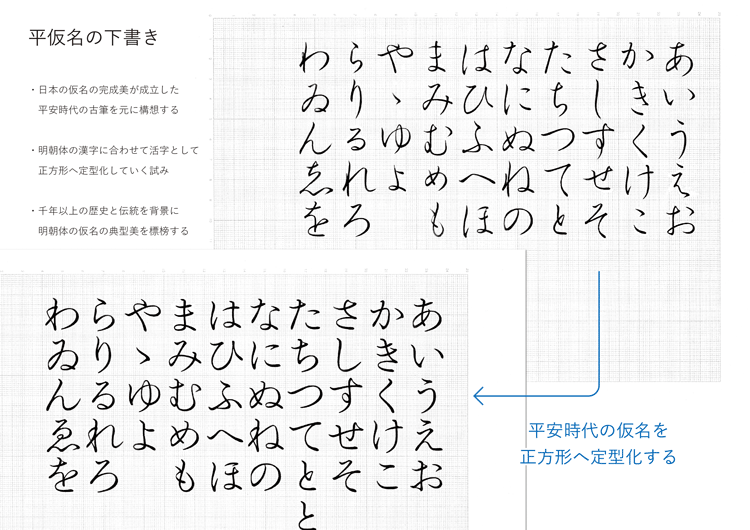 平仮名の下書き
・日本の仮名の完成美が成立した
平安時代の古筆を元に構想する
・明朝体の漢字に合わせて活字として
正方形へ定型化していく試み
・千年以上の歴史と伝統を背景に
明朝体の仮名の典型美を標榜する
わらやまはなたさかあ
ゐりゝみひにちしきい
んるゆむふぬつすくう
ゑれよめへねてせけえ
をろ もほのとそこお
わらやまはなたさかあ
ゐりゝみひにちしきい
んるゆむふぬつすくう
ゑれよめへねてせけえ
をろ もほのとそこお
と
平安時代の仮名を
正方形へ定型化する